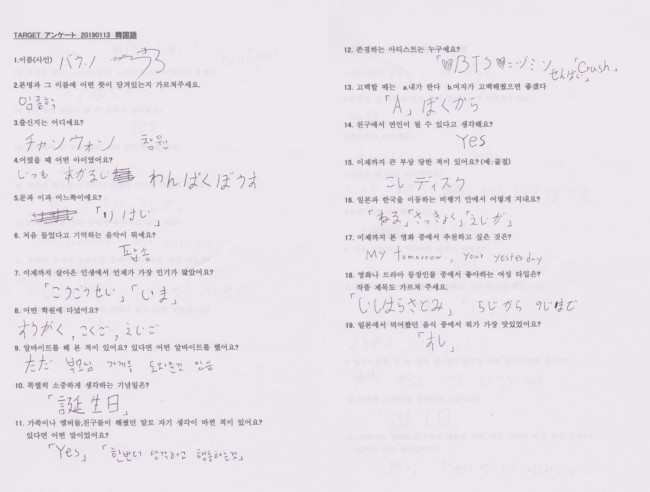 TARGET アンケート 20190113 韓国語
1.이름(사인)
2.본명과 그 이름에 어떤 뜻이 담겨있는지 가르쳐주세요.
임준혁
3.출신지는 어디에요?
チャンウォン 창원
4.어렸을 때 어떤 아이였어요?
いつも わんぱくぼうず
5.문과 이과 어느쪽이에요?
「りけい」
6. 처음 들었다고 기억하는 음악이 뭐에요?
팝송
7. 이제까지 살아온 인생에서 언제가 가장 인기가 많았어요?
「こうこうせい」「いま」
8. 어떤 학원에 다녔어요?
すうがく,こくご,えいご
9. 알바이트를 해 본 적이 있어요? 있다면 어떤 알바이트를 했어요?
ただ 부모님 가게를 도와준건 있음
10. 특별히 소중하게 생각하는 기념일은?
「誕生日」
11. 가족이나 멤버들,친구들이 해줬던 말로 자기 생각이 바뀐 적이 있어요?
있다면 어떤 말이었어요?
「Yes」「한번더 생각하고 행동하는것」
12. 존경하는 아티스트는 누구에요?
「♡BTS♡ せんぱい「Crush」
13. 고백할 때는 a.내가 한다 b.여자가 고백해줬으면 좋겠다
「A」ぼくから
14. 친구에서 연인이 될 수 있다고 생각해요?
Yes
15. 이제까지 큰 부상 당한 적이 있어요?(예:골절)
こしディスク
16. 일본과 한국을 이동하는 비행기 안에서 어떻게 지내요?
「ねる」「さっきょく」「えいが」
17. 이제까지 본 영화 중에서 추천하고 싶은 것은?
My tomorrow, your yesterday
18. 영화나 드라마 등장인물 중에서 좋아하는 여성 타입은?
작품 제목도 가르쳐 주세요.
「いしはらさとみ」 5じから 9じまで
19. 일본에서 먹어봤던 음식 중에서 뭐가 가장 맛있었어요?
「すし」